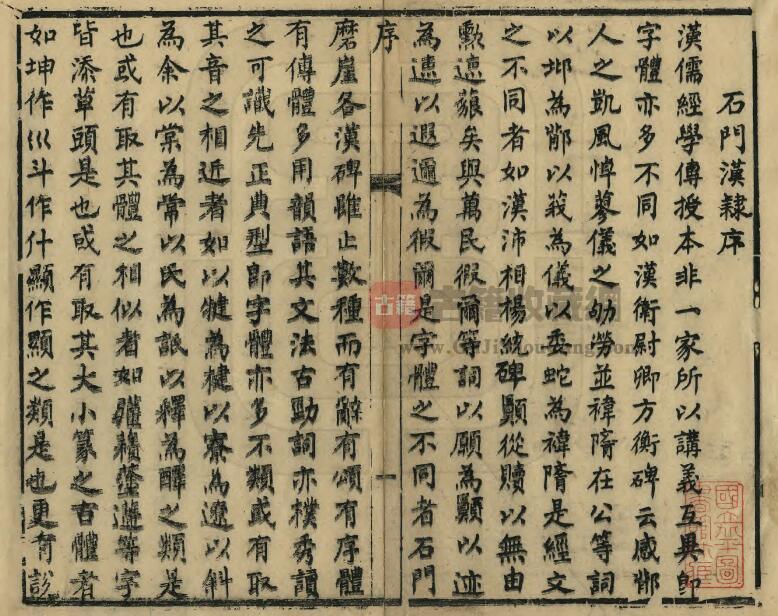 石門漢隸序
漢儒經學傳授本非一家所以講義互異即
字體亦多不同如漢衛尉卿方衡碑云感鄁
人之凱風悼蓼儀之劬勞並禕隋在公等詞
以邶為鄁以莪為儀以委蛇為禕隋是經文
之不同者如漢沛相楊統碑顥從贖以無由
勳速藐矣與萬民徦爾等詞以願為顥以迹
為速以遐邇為徦爾是字體之不同者石門
序
一
磨崖各漢碑雖止數種而有辭有頌有序體
有傳體多用韻語其文法古勁詞亦樸秀讀
之可識先正典型即字體亦多不類或有取
其音之相近者如以犍為楗以寮為遼以斜
為余以棠為常以民為詆以釋為醳之類是
也或有取其體之相似者如
等字
皆添草頭是也或有取其大小篆之古體者
如坤作巛斗作什顯作顕之類是也更有